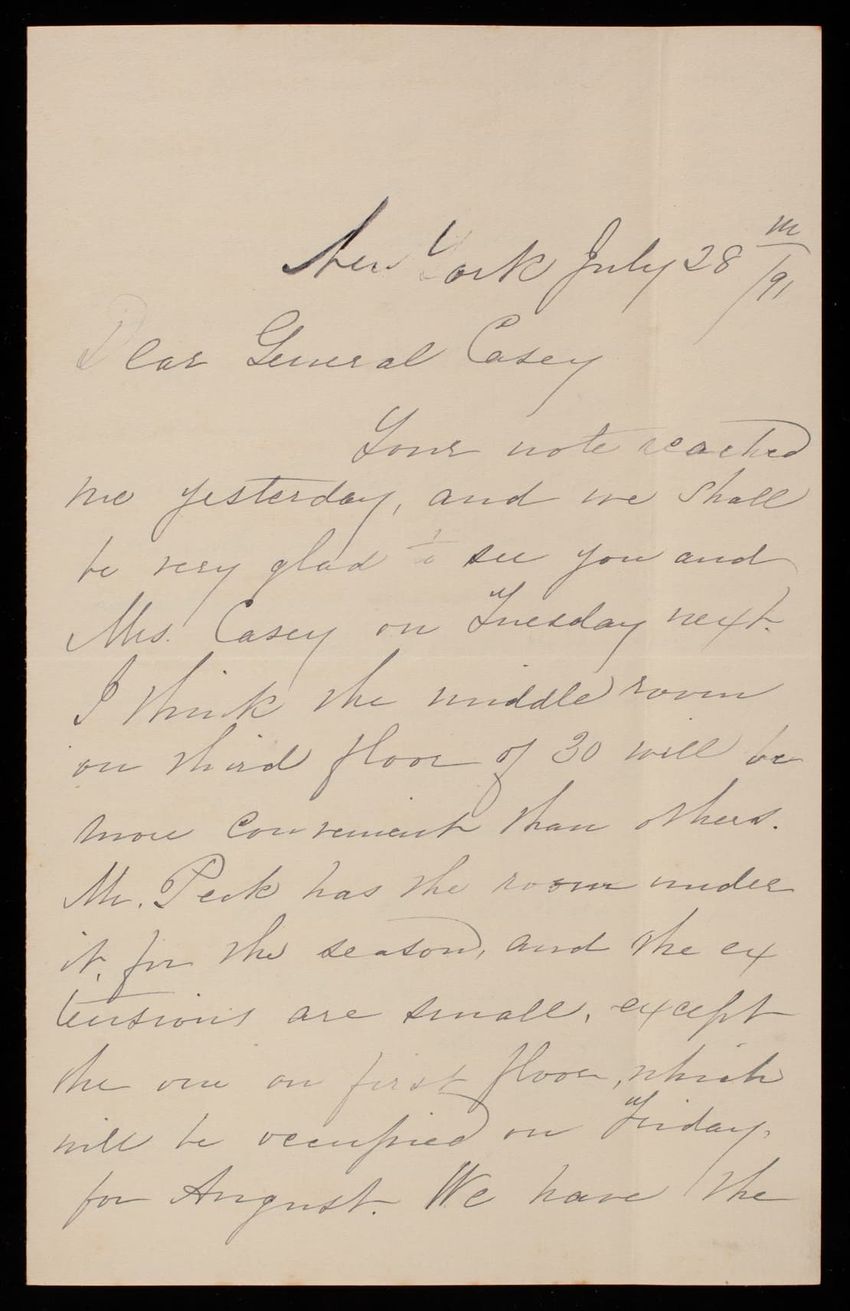 New York July 28th
/91
Dear General Casey
Your note reached
me yesterday, and we shall
be very glad to see you and
Mrs. Casey on Tuesday next.
I think the middle room
on third floor of 30 will be
more convenient than others.
Mr. Peck has the room under
it, for the season, and the ex
tensions are small, except
the one on first floor, which
will be occupied on Friday,
for August. We have the